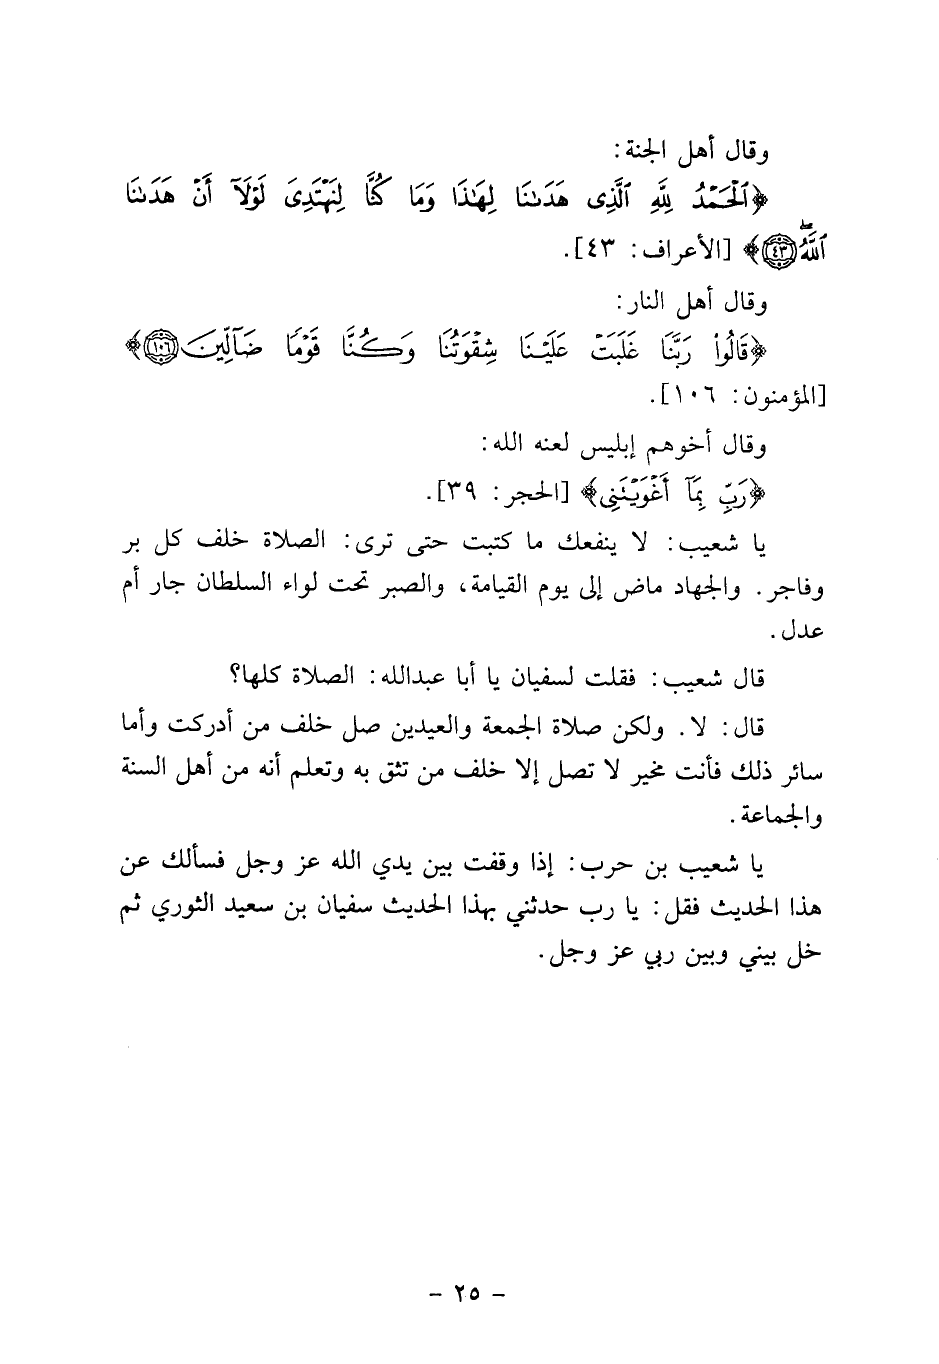 وقال أهل الجنة:
﴿ٱلْحَمْدُ لِلَّهِ ٱلَّذِى هَدَىٰنَا لِهَٰذَا وَمَا كُنَّا لِنَهْتَدِىَ لَوْلَآ أَنْ هَدَىٰنَا
ٱللَّهُۖ ٤٣﴾ [الأعراف: ٤٣].
وقال أهل النار:
﴿قَالُوا۟ رَبَّنَا غَلَبَتْ عَلَيْنَا شِقْوَتُنَا وَكُنَّا قَوْمًا ضَآلِّينَ ١٠٦﴾
[المؤمنون: ١٠٦].
وقال أخوهم إبليس لعنه الله:
﴿رَبِّ بِمَآ أَغْوَيْتَنِى﴾ [الحجر: ٣٩].
يا شعيب: لا ينفعك ما كتبت حتى ترى: الصلاة خلف كل بر
وفاجر. والجهاد ماض إلى يوم القيامة، والصبر تحت لواء السلطان جار أم
عدل.
قال شعيب: فقلت لسفيان يا أبا عبدالله: الصلاة كلها؟
قال: لا. ولكن صلاة الجمعة والعيدين صل خلف من أدركت وأما
سائر ذلك فأنت مخير لا تصل إلا خلف من تثق به وتعلم أنه من أهل السنة
والجماعة.
يا شعيب بن حرب: إذا وقفت بين يدي الله عز وجل فسألك عن
هذا الحديث فقل: يا رب حدثني بهذا الحديث سفيان بن سعيد الثوري ثم
خل بيني وبين ربي عز وجل.
- ٢٥ -